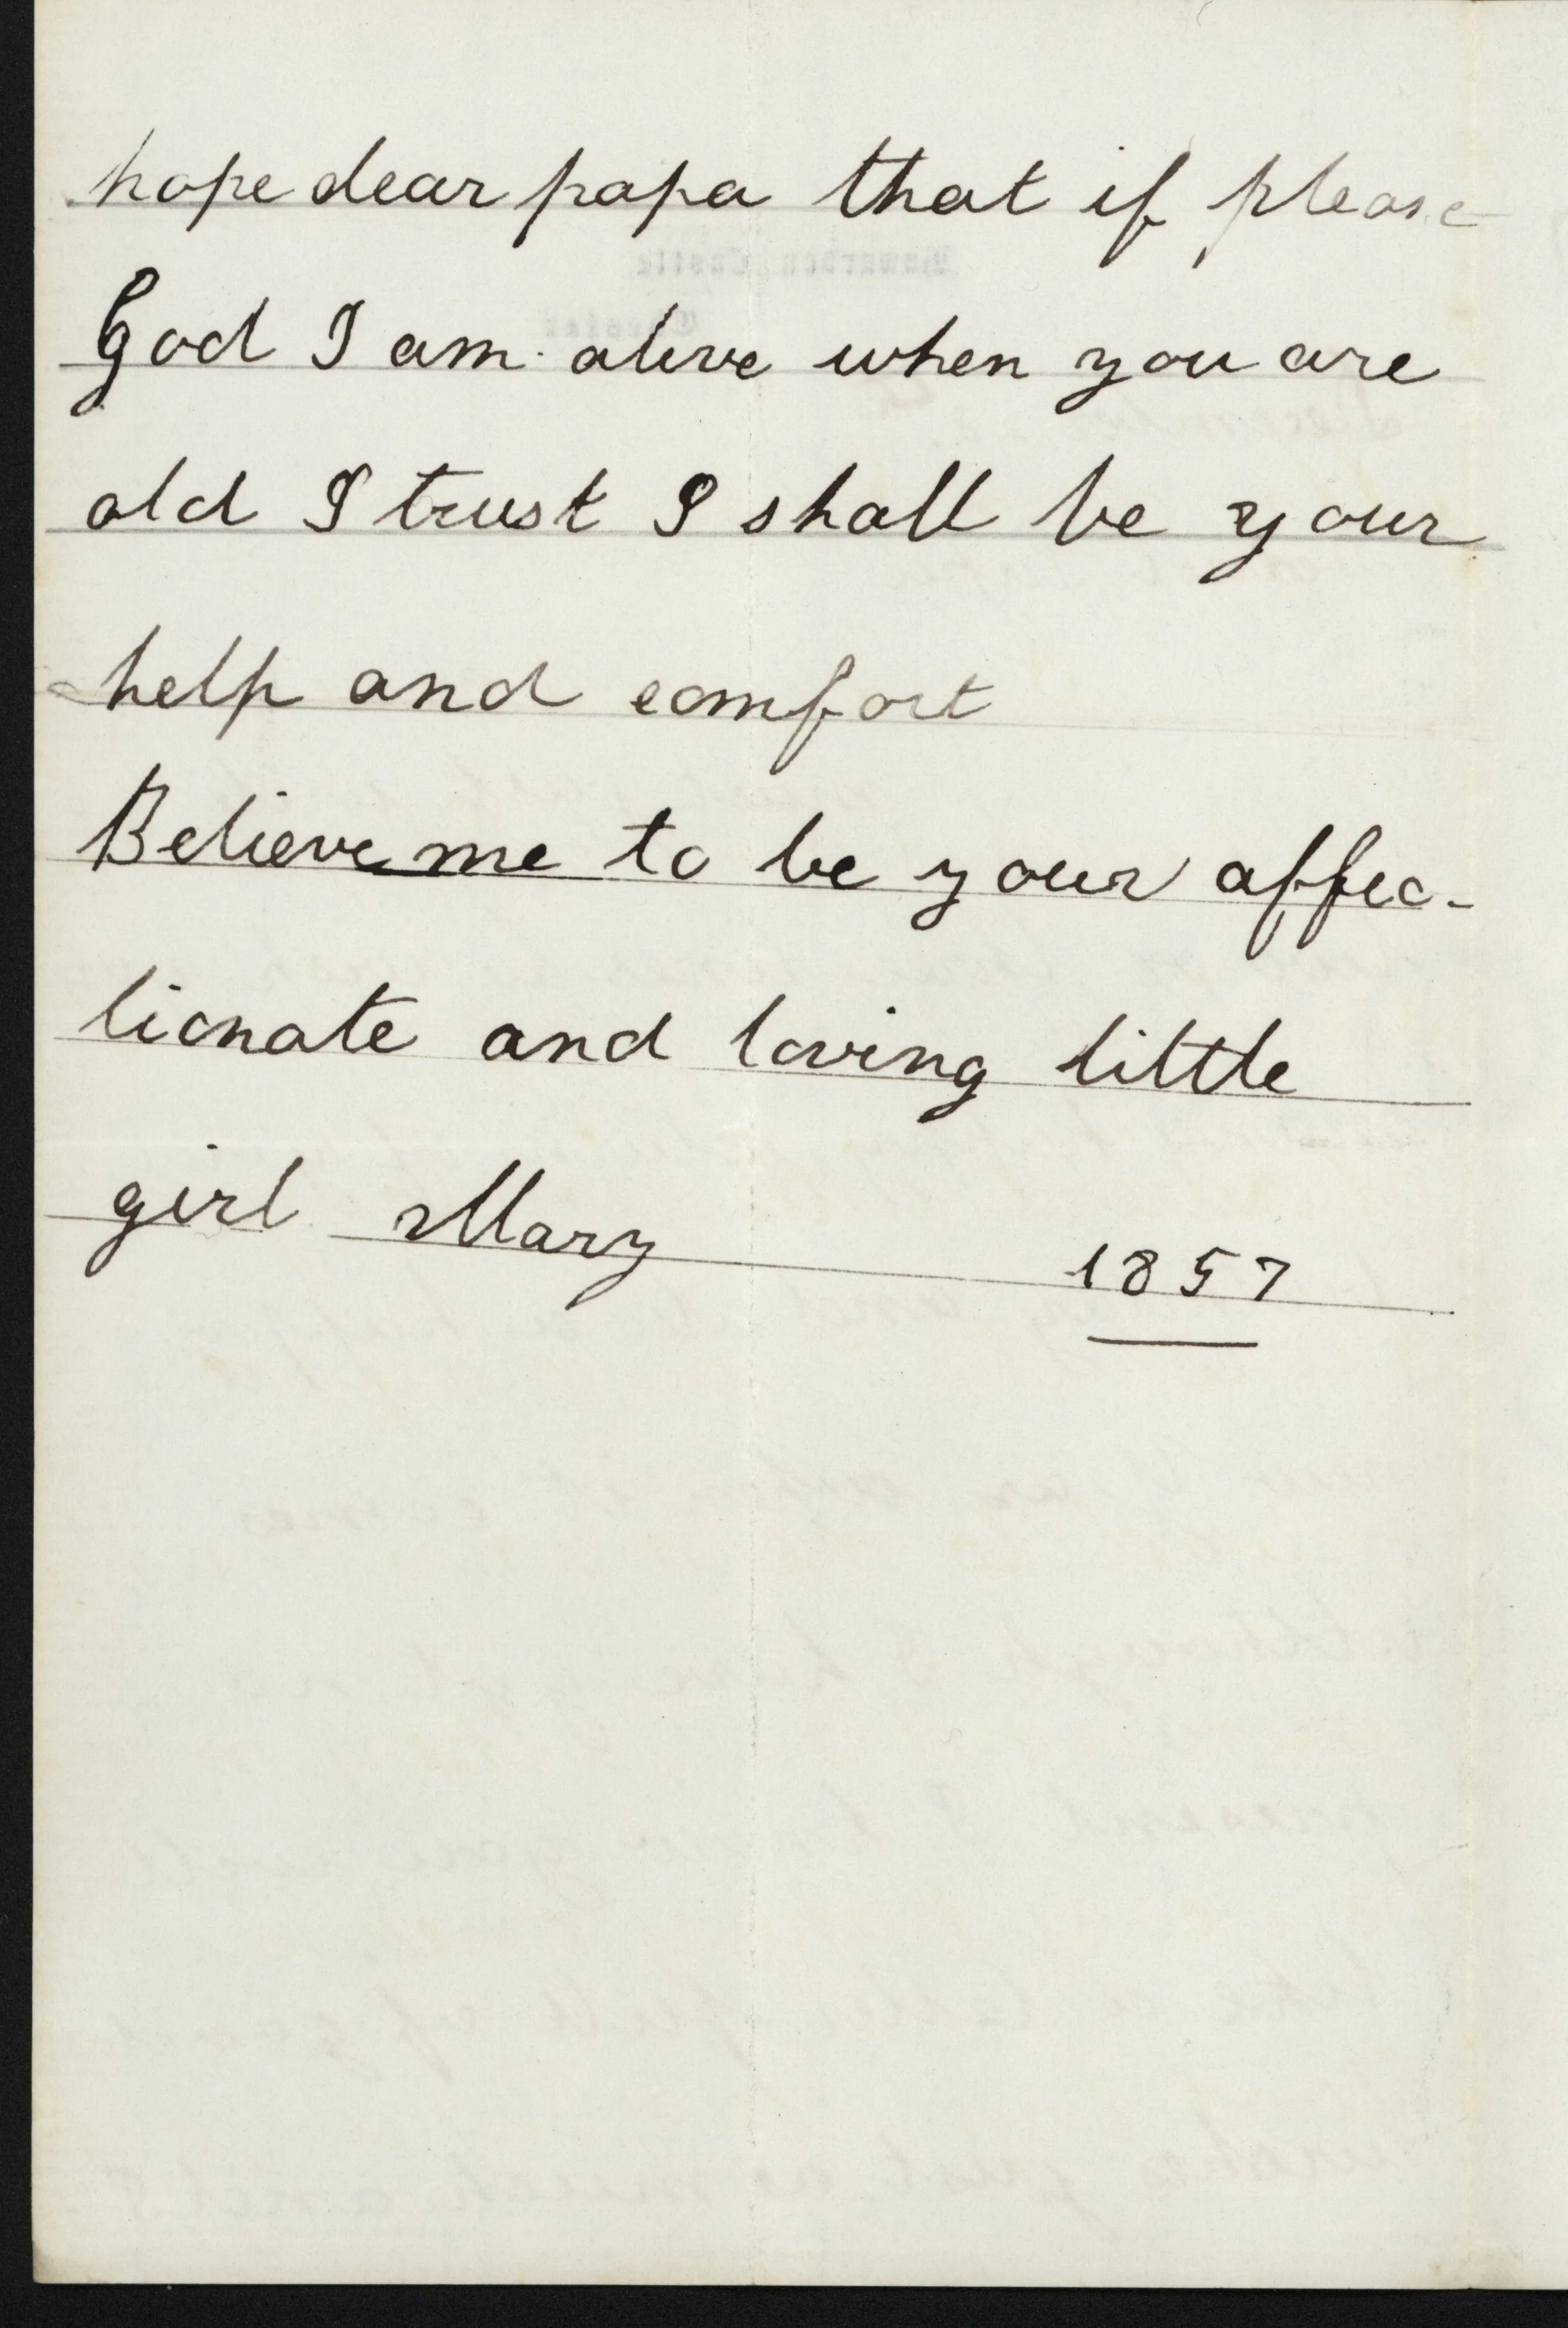 hope dear papa that if please
God I am alive when you are
old I trust I shall be your
help and comfort
Believe me to be your affec-
tionate and loving little
girl Mary 1857